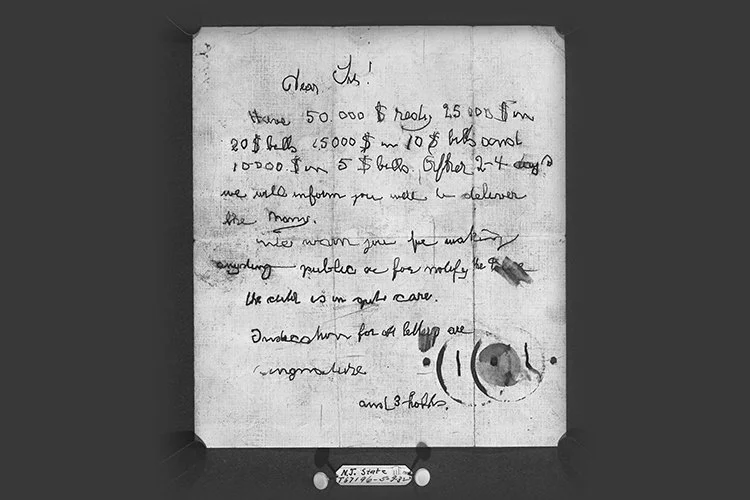 Dear Sir!
Have 50.000 $ redy 25000 $ in
20 $ bills 15000 $ in 10 $ bills and
10000 $ in 5 $ bills. After 2-4 days
we will inform you were to deliver
the Mony.
We warn you for making
anyding public or for notify the Police
the child is in gute care.
Indication for all letters are
singnature
and 3 holds.
N.J. State